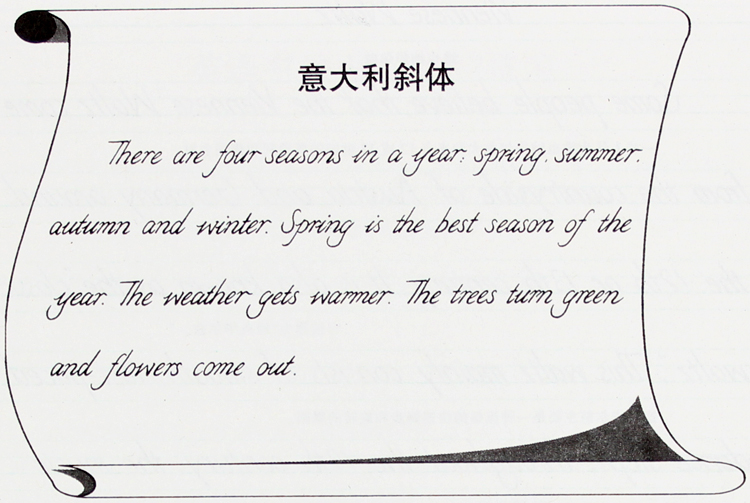 意大利斜体
There are four seasons in a year: spring, summer,
autumn and winter. Spring is the best season of the
year. The weather gets warmer. The trees turn green
and flowers come out.